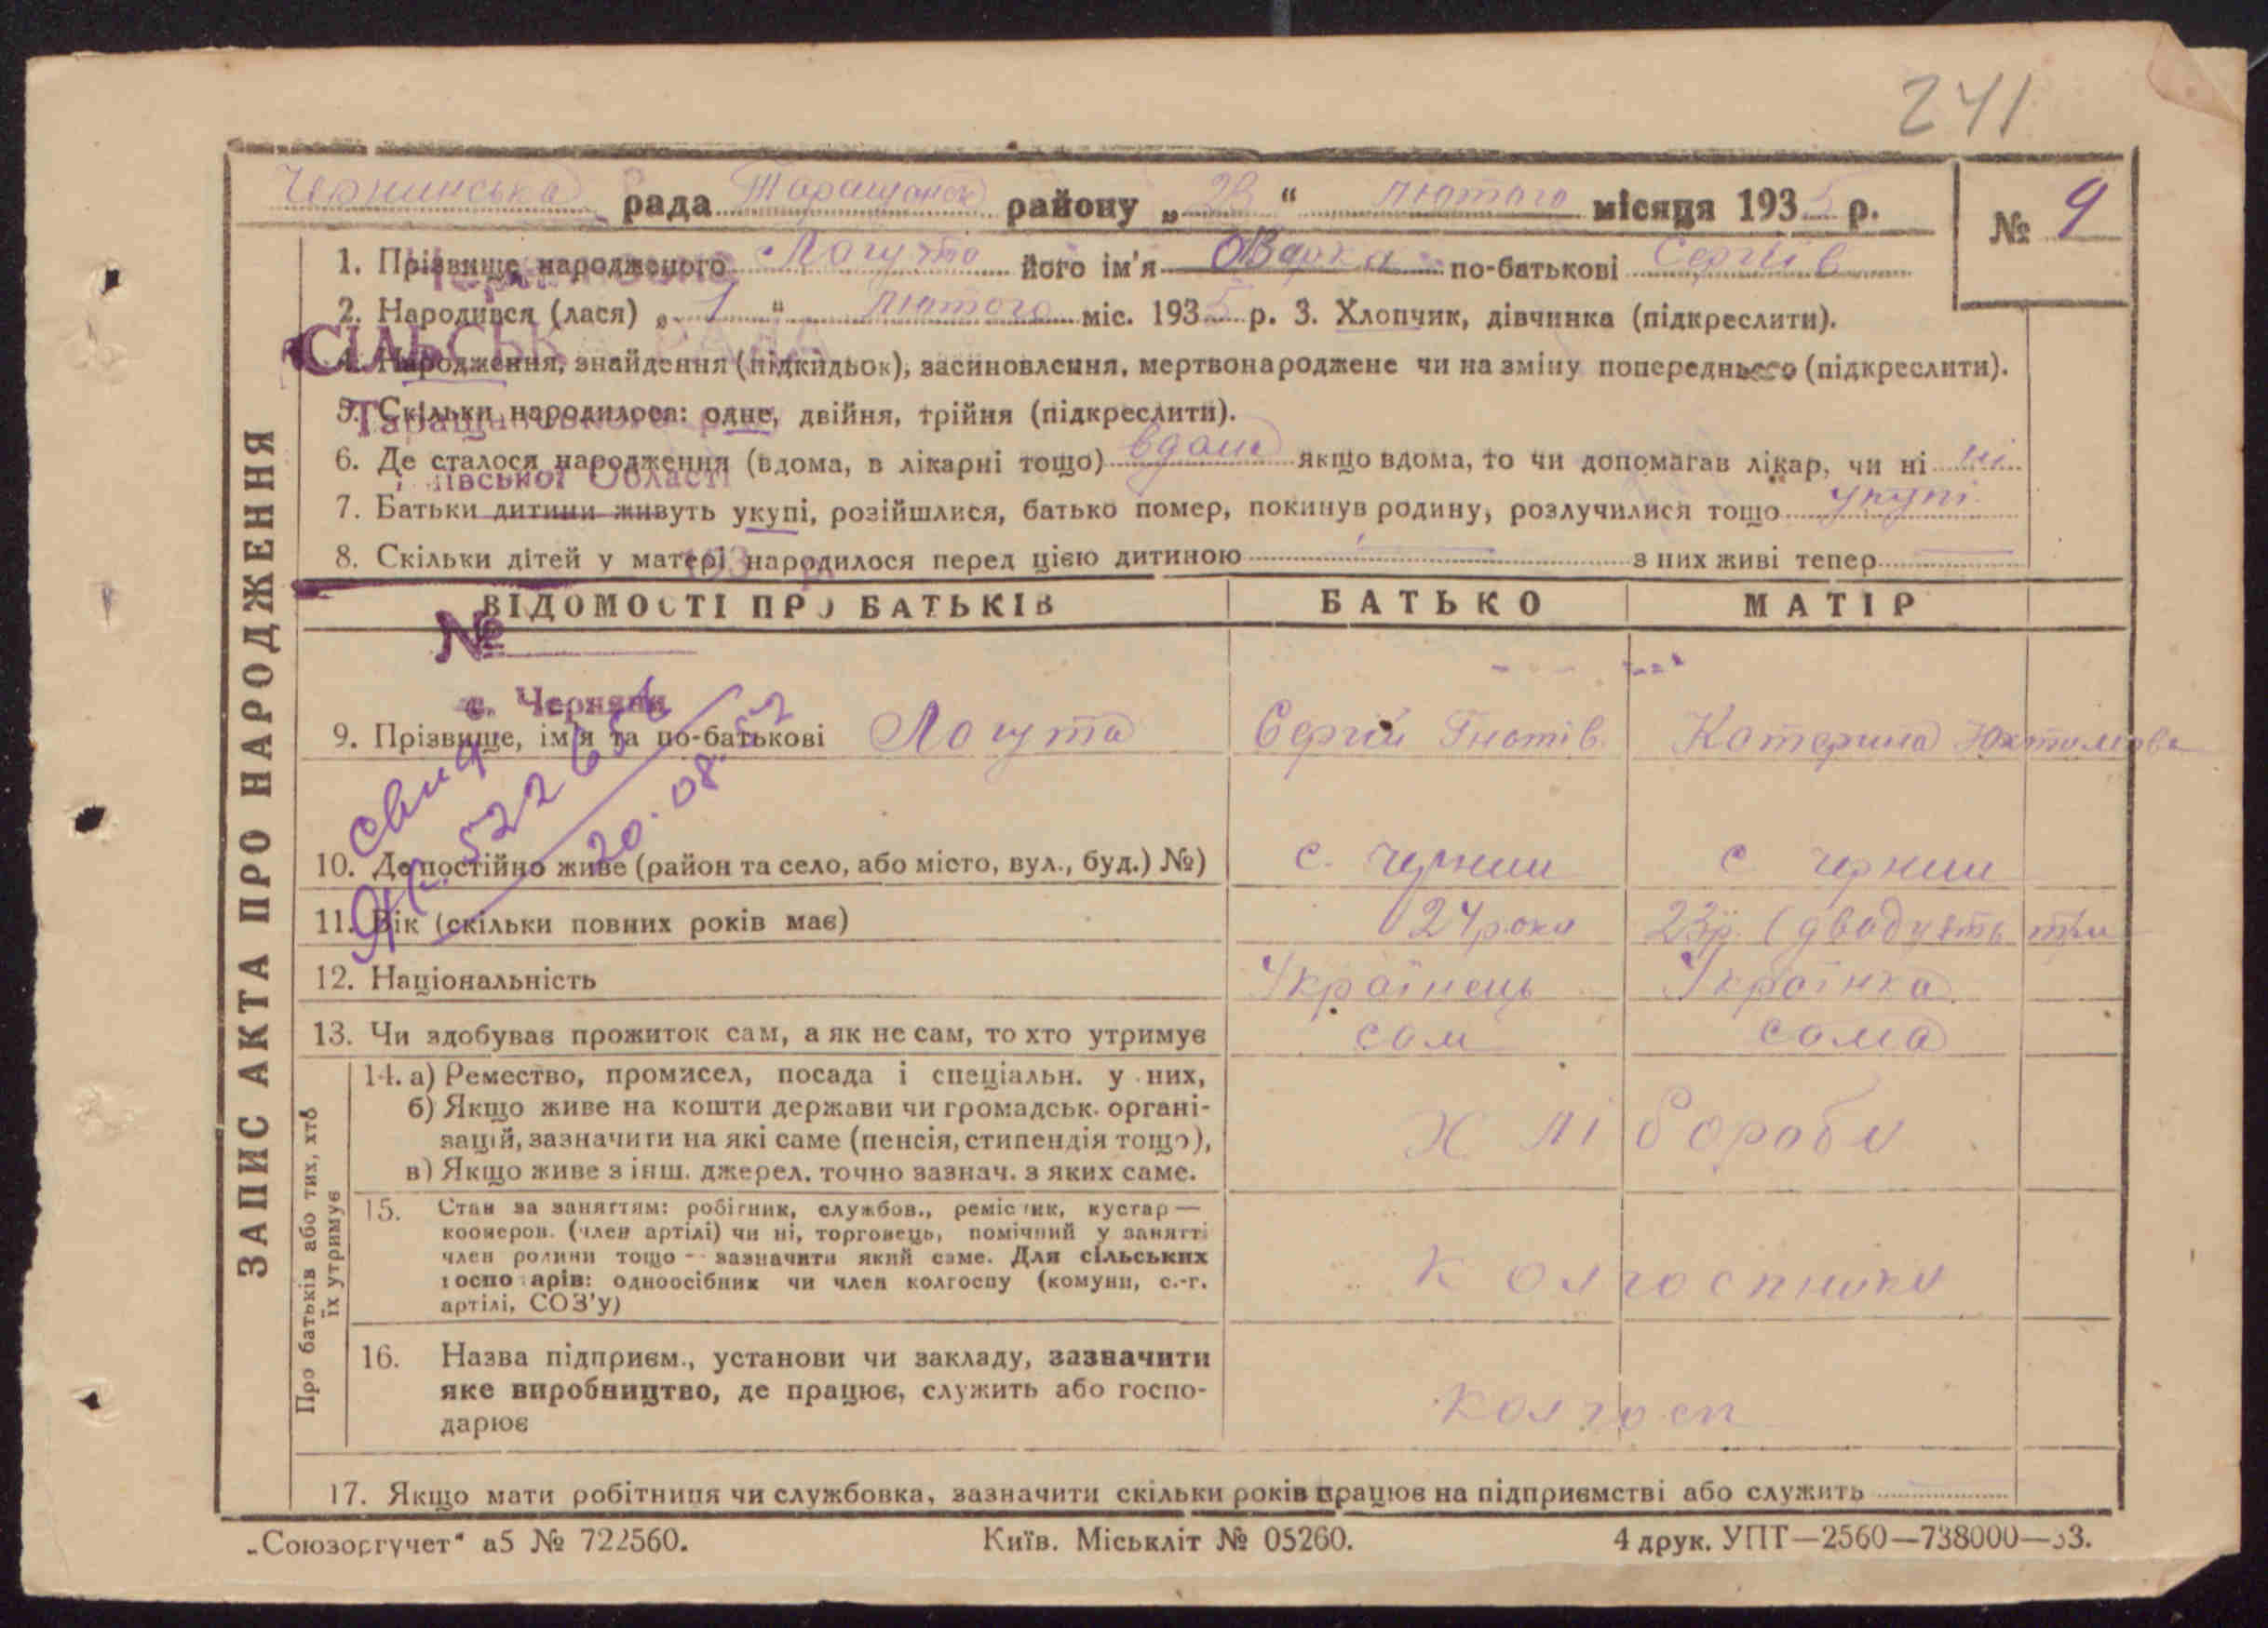 241
Чернинська рада Таращанськ району „23“ лютого місяця 1935 р.
№ 9
1. Прізвище народженого Логута його ім'я Варка по-батькові Сергіїв
2. Народився (лася) „1“ лютого міс. 1935 р. 3. Хлопчик, дівчинка (підкреслити).
СІЛЬСЬК
4. Народження, знайдення (підкидьок), засиновлення, мертвонароджене чи на зміну попереднього (підкреслити).
5. Скільки народилося: одне, двійня, трійня (підкреслити).
6. Де сталося народження (вдома, в лікарні тощо) вдома якщо вдома, то чи допомагав лікар, чи ні ні
ївської Області
7. Батьки дитини живуть укупі, розійшлися, батько помер, покинув родину, розлучилися тощо укупі
8. Скільки дітей у матері народилося перед цією дитиною — з них живі тепер —
193 р.
ВІДОМОСТІ ПРО БАТЬКІВ БАТЬКО МАТІР
№
с. Черняни
9. Прізвище, ім'я та по-батькові Логута Сергій Гнатів Катерина
Свид
20.08.
10. Де постійно живе (район та село, або місто, вул., буд.) №) с. Чернин с Чернин
11. Вік (скільки повних років має) 24 роки 23 р. (двадцять три
12. Національність Українець Українка
13. Чи здобував прожиток сам, а як не сам, то хто утримує сам сама
14. а) Ремество, промисел, посада і спеціальн. у них,
б) Якщо живе на кошти держави чи громадськ. органі-
зацій, зазначити на які саме (пенсія, стипендія тощо),
в) Якщо живе з інш. джерел. точно зазнач. з яких саме.
хлібороби
15. Стан за заняттям: робітник, службов., ремісник, кустар —
кооперов. (член артілі) чи ні, торговець, помічний у занятті
член родини тощо — зазначити який саме. Для сільських
господарів: одноосібник чи член колгоспу (комуни, с.-г.
артілі, СОЗ'у)
колгоспники
16. Назва підприєм., установи чи закладу, зазначити
яке виробництво, де працює, служить або госпо-
дарює
колгосп
17. Якщо мати робітниця чи службовка, зазначити скільки років працює на підприємстві або служить
ЗАПИС АКТА ПРО НАРОДЖЕННЯ
Про батьків або тих, хто
їх утримує
„Союзоргучет“ а5 № 722560. Київ. Міськліт № 05260. 4 друк. УПТ—2560—738000—33.